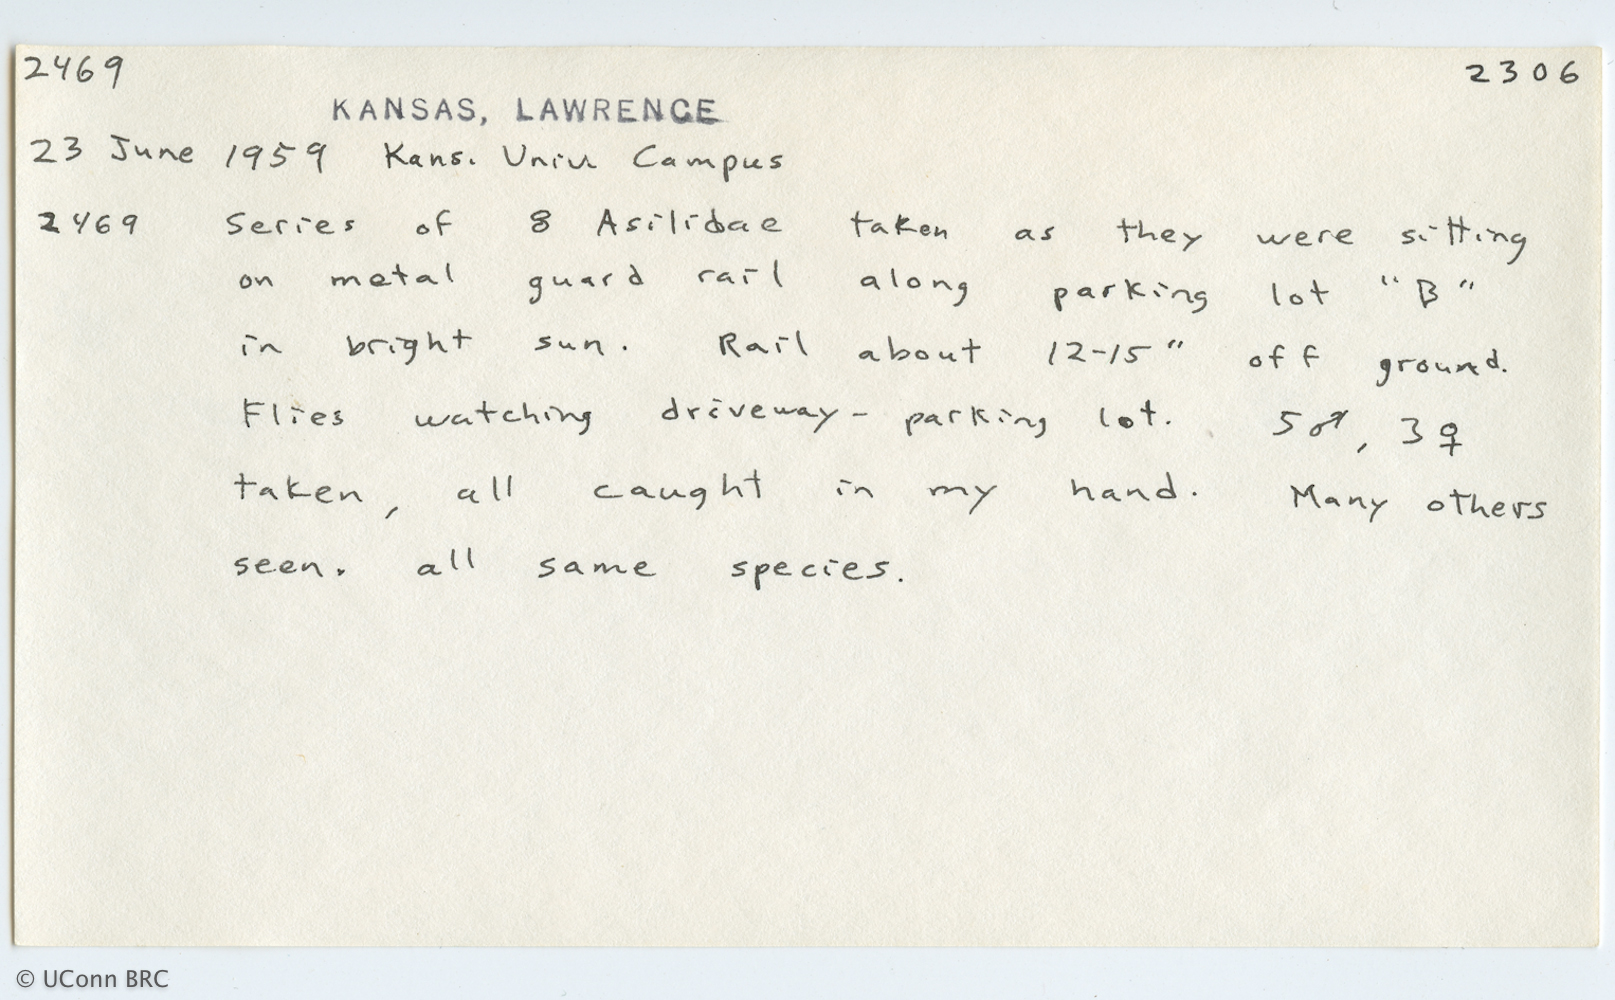 2469 2306
KANSAS, LAWRENCE
23 June 1959 Kans. Univ Campus
2469 Series of 8 Asilidae taken as they were sitting
on metal guard rail along parking lot "B"
in bright sun. Rail about 12-15" off ground.
Flies watching driveway - parking lot. 5♂, 3♀
taken, all caught in my hand. Many others
seen. all same species.
© UConn BRC